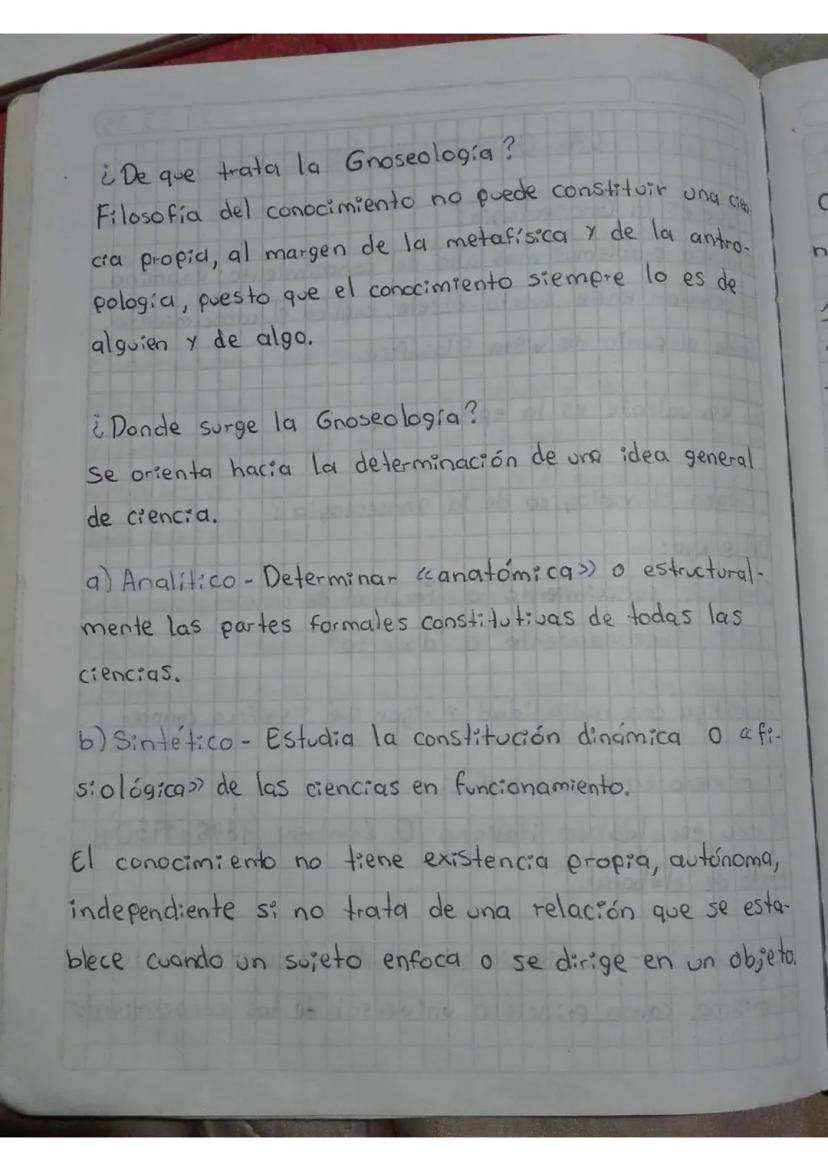 ¿De que trata la Gnoseología?
Filosofía del conocimiento no puede constituir una cien
cia propia, al margen de la metafísica y de la antro-
pología, puesto que el conocimiento siempre lo es de
alguien y de algo.
¿Donde surge la Gnoseología?
Se orienta hacia la determinación de una idea general
de ciencia.
a) Analítico - Determinar «anatómica» o estructural-
mente las partes formales constitutivas de todas las
ciencias.
b) Sintético - Estudia la constitución dinámica o «fi-
siológica» de las ciencias en funcionamiento.
El conocimiento no tiene existencia propia, autónoma,
independiente si no trata de una relación que se esta-
blece cuando un sujeto enfoca o se dirige en un objeto.